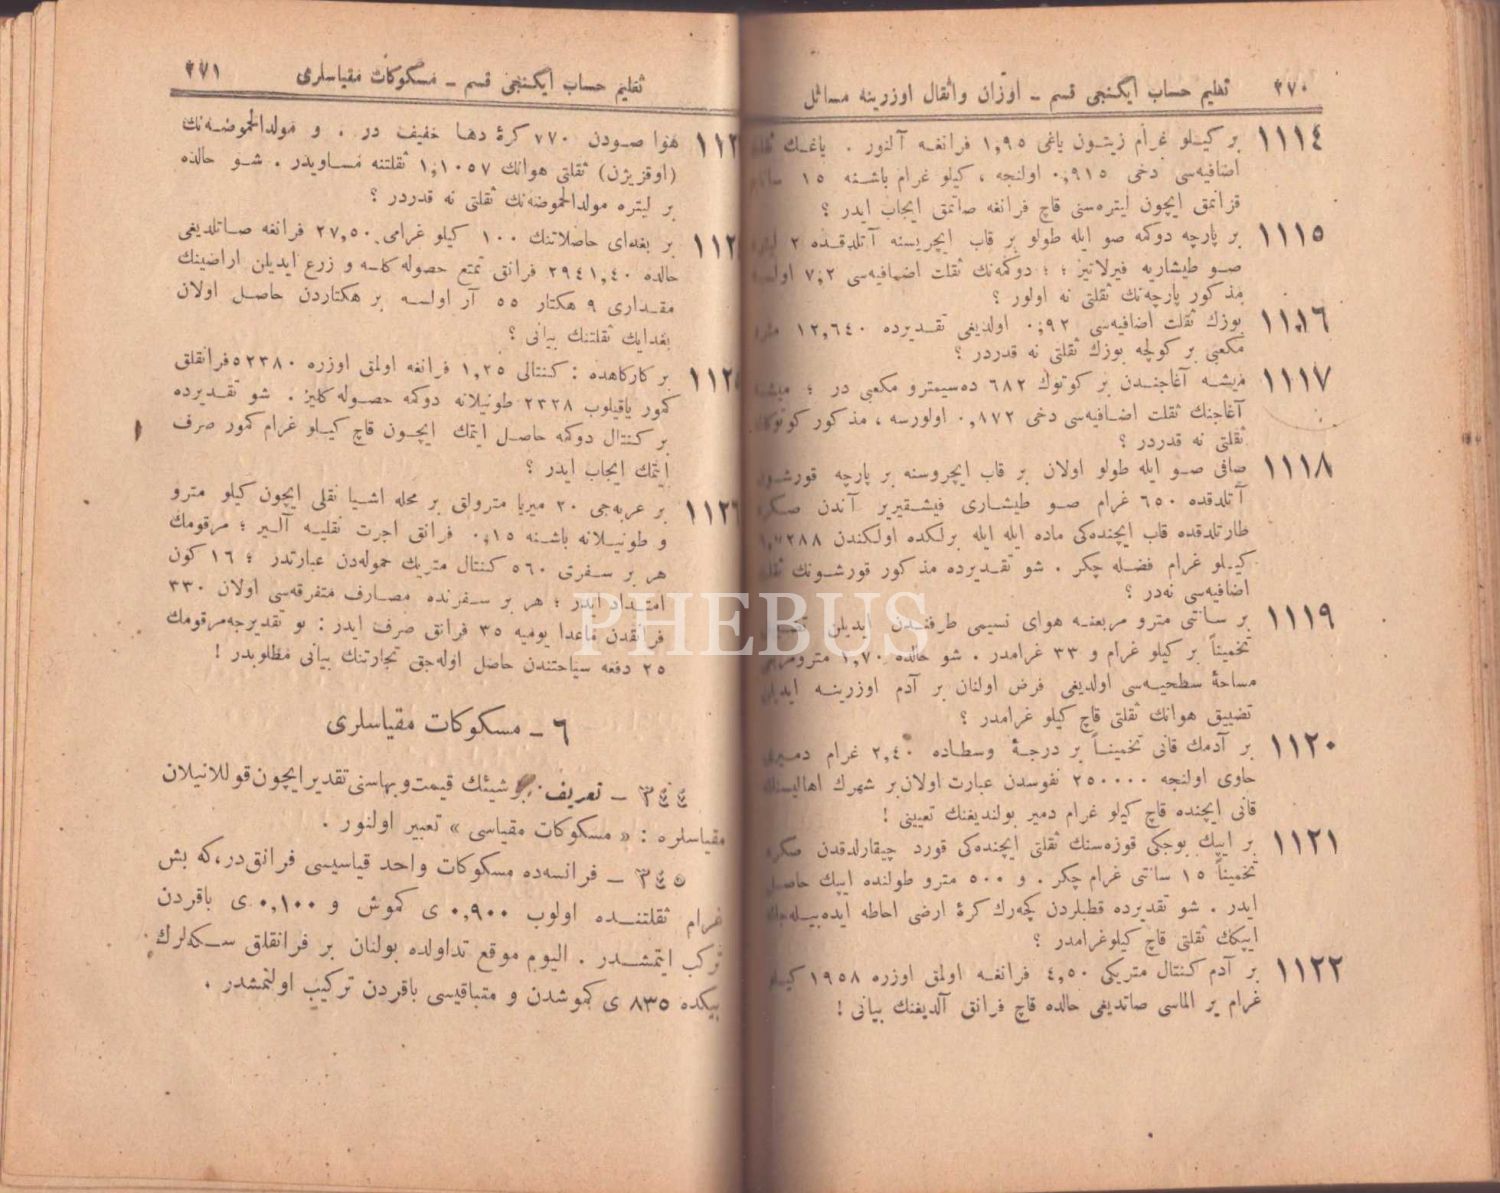 ٢٧٠ تعليم حساب ايكنجى قسم ـ اوزان واثقال اوزرينه مسائل
١١١٤ بر كيلو غرام زيتون ياغى ١,٩٥ فرانغه آلنور . ياغك
اضافيه‌سى دخى ٠,٩١٥ اولنجه ، كيلو غرام باشنه ١٥
قزانمق ايچون ليتره‌سنى قاچ فرانغه صاتمق ايجاب ايدر ؟
١١١٥ بر پارچه دوكمه صو ايله طولو بر قاب ايچريسنه آتلدقده ٢
صو طيشاريه فيرلاتير ؛ دوكمه‌نك ثقلت اضافيه‌سى ٧,٢
مذكور پارچه‌نك ثقلتى نه اولور ؟
١١١٦ بوزك ثقلت اضافيه‌سى ٠,٩٢ اولديغى تقديرده ١٢,٦٤٠
مكعبى بر كولچه بوزك ثقلتى نه قدردر ؟
١١١٧ ميشه آغاجندن بر كوتوك ٦٨٢ ده‌سيمترو مكعبى در ؛ ميشه
آغاجنك ثقلت اضافيه‌سى دخى ٠,٨٧٢ اولورسه ، مذكور
ثقلتى نه قدردر ؟
١١١٨ صافى صو ايله طولو اولان بر قاب ايچروسنه بر پارچه قورشون
آتلدقده ٦٥٠ غرام صو طيشارى فيشقيرير آندن صكره
طارتلدقده قاب ايچنده‌كى ماده ايله ايله برلكده اولكندن
كيلو غرام فضله چكر . شو تقديرده مذكور قورشونك
اضافيه‌سى نه‌در ؟
١١١٩ بر سانتى مترو مربعنه هواى نسيمى طرفندن ايديلن
تخميناً بر كيلو غرام و ٣٣ غرامدر . شو حالده ١,٧٠
مساحهٔ سطحيه‌سى اولديغى فرض اولنان بر آدم اوزرينه
تضييق هوانك ثقلتى قاچ كيلو غرامدر ؟
١١٢٠ بر آدمك قانى تخميناً بر درجهٔ وسطاده ٢,٤٠ غرام
حاوى اولنجه ٢٥٠٠٠٠ نفوسدن عبارت اولان بر شهرك اهاليسنك
قانى ايچنده قاچ كيلو غرام دمير بولنديغنك تعيينى !
١١٢١ بر ايپك بوجكى قوزه‌سنك ثقلتى ايچنده‌كى قورد چيقارلدقدن صكره
تخميناً ١٥ سانتى غرام چكر . و ٥٠٠ مترو طولنده ايپك
ايدر . شو تقديرده قطبلردن كچه‌رك كرهٔ ارضى احاطه ايده‌بيله‌جك
ايپكك ثقلتى قاچ كيلوغرامدر ؟
١١٢٢ بر آدم كنتال متريكى ٤,٥٠ فرانغه اولمق اوزره ١٩٥٨ كيلو
غرام ير الماسى صاتديغى حالده قاچ فرانق آلديغنك بيانى !
تعليم حساب ايكنجى قسم ـ مسكوكات مقياسلرى ٢٧١
هوا صودن ٧٧٠ كره دها خفيف در . و مولدالحموضه‌نك
(اوقزيژن) ثقلتى هوانك ١,١٠٥٧ ثقلتنه مساويدر . شو حالده
بر ليتره مولدالحموضه‌نك ثقلتى نه قدردر ؟
بر بغداى حاصلاتنك ١٠٠ كيلو غرامى ٢٧,٥٠ فرانغه صاتلديغى
حالده ٢٩٤١,٤٠ فرانق تمتع حصوله كلسه و زرع ايديلن اراضينك
مقدارى ٩ هكتار ٥٥ آر اولسه بر هكتاردن حاصل اولان
بغدايك ثقلتنك بيانى ؟
بر كاركاهده : كنتالى ١,٢٥ فرانغه اولمق اوزره ٥٢٣٨٠ فرانقلق
كمور ياقيلوب ٢٣٢٨ طونيلاته دوكمه حصوله كلير . شو تقديرده
بر كنتال دوكمه حاصل ايتمك ايچون قاچ كيلو غرام كمور صرف
ايتمك ايجاب ايدر ؟
١١٢٦ بر عربه‌جى ٢٠ ميريا مترولق بر محله اشيا نقلى ايچون كيلو مترو
و طونيلاته باشنه ٠,١٥ فرانق اجرت نقليه آلير ؛ مرقومك
هر بر سفرى ٥٦٠ كنتال متريك حموله‌دن عبارتدر ؛ ١٦ كون
امتداد ايدر ؛ هر بر سفرنده مصارف متفرقه‌سى اولان ٣٣٠
فرانقدن ماعدا يوميه ٣٥ فرانق صرف ايدر : بو تقديرجه مرقومك
٢٥ دفعه سياحتندن حاصل اوله‌جق تجارتنك بيانى مطلوبدر !
٦ ـ مسكوكات مقياسلرى
٣٤٤ ـ تعريف . بر شيئك قيمت و بهاسنى تقدير ايچون قوللانيلان
مقياسلره : « مسكوكات مقياسى » تعبير اولنور .
٣٤٥ ـ فرانسه‌ده مسكوكات واحد قياسيسى فرانق‌در ، كه بش
غرام ثقلتنده اولوب ٠,٩٠٠ ى كموش و ٠,١٠٠ ى باقردن
تركب ايتمشدر . اليوم موقع تداولده بولنان بر فرانقلق سكه‌لرك
بيكده ٨٣٥ ى كموشدن و متباقيسى باقردن تركيب اولنمشدر .
PHEBUS